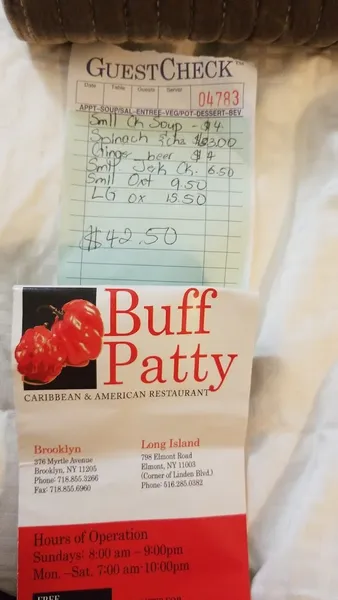 GUESTCHECK™
Date Table Guests Server
04783
APPT-SOUP/SAL-ENTREE-VEG/POT-DESSERT-BEV
Smll Ch Soup - $4
Spinach $3.00
Ginger beer $4
Smll Jerk Ck. 6.50
Smll Oxt 9.50
LG OX 15.50
$42.50
Buff
Patty
CARIBBEAN & AMERICAN RESTAURANT
Brooklyn
376 Myrtle Avenue
Brooklyn, NY 11205
Phone: 718.855.3266
Fax: 718.855.6960
Long Island
798 Elmont Road
Elmont, NY 11003
(Corner of Linden Blvd.)
Phone: 516.285.0382
Hours of Operation
Sundays: 8:00 am – 9:00pm
Mon. –Sat. 7:00 am-10:00pm
FREE